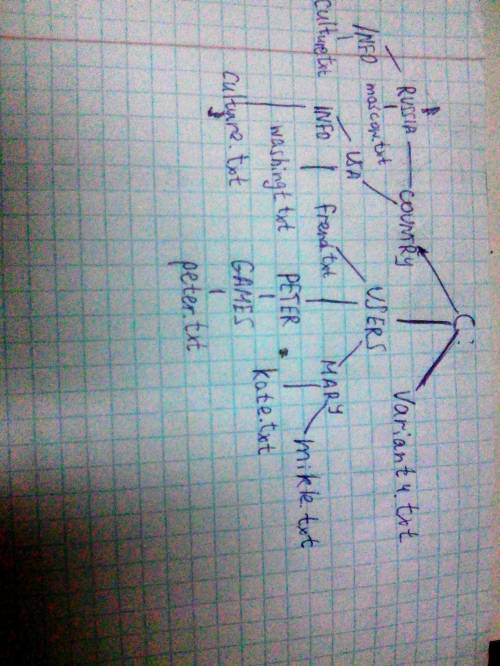 C:
RUSSIA COUNTRY variant4.txt
INFO moscow.txt USA USERS
culture.txt INFO frend.txt MARY mikle.txt
washingt.txt PETER kate.txt
culture.txt GAMES
peter.txt